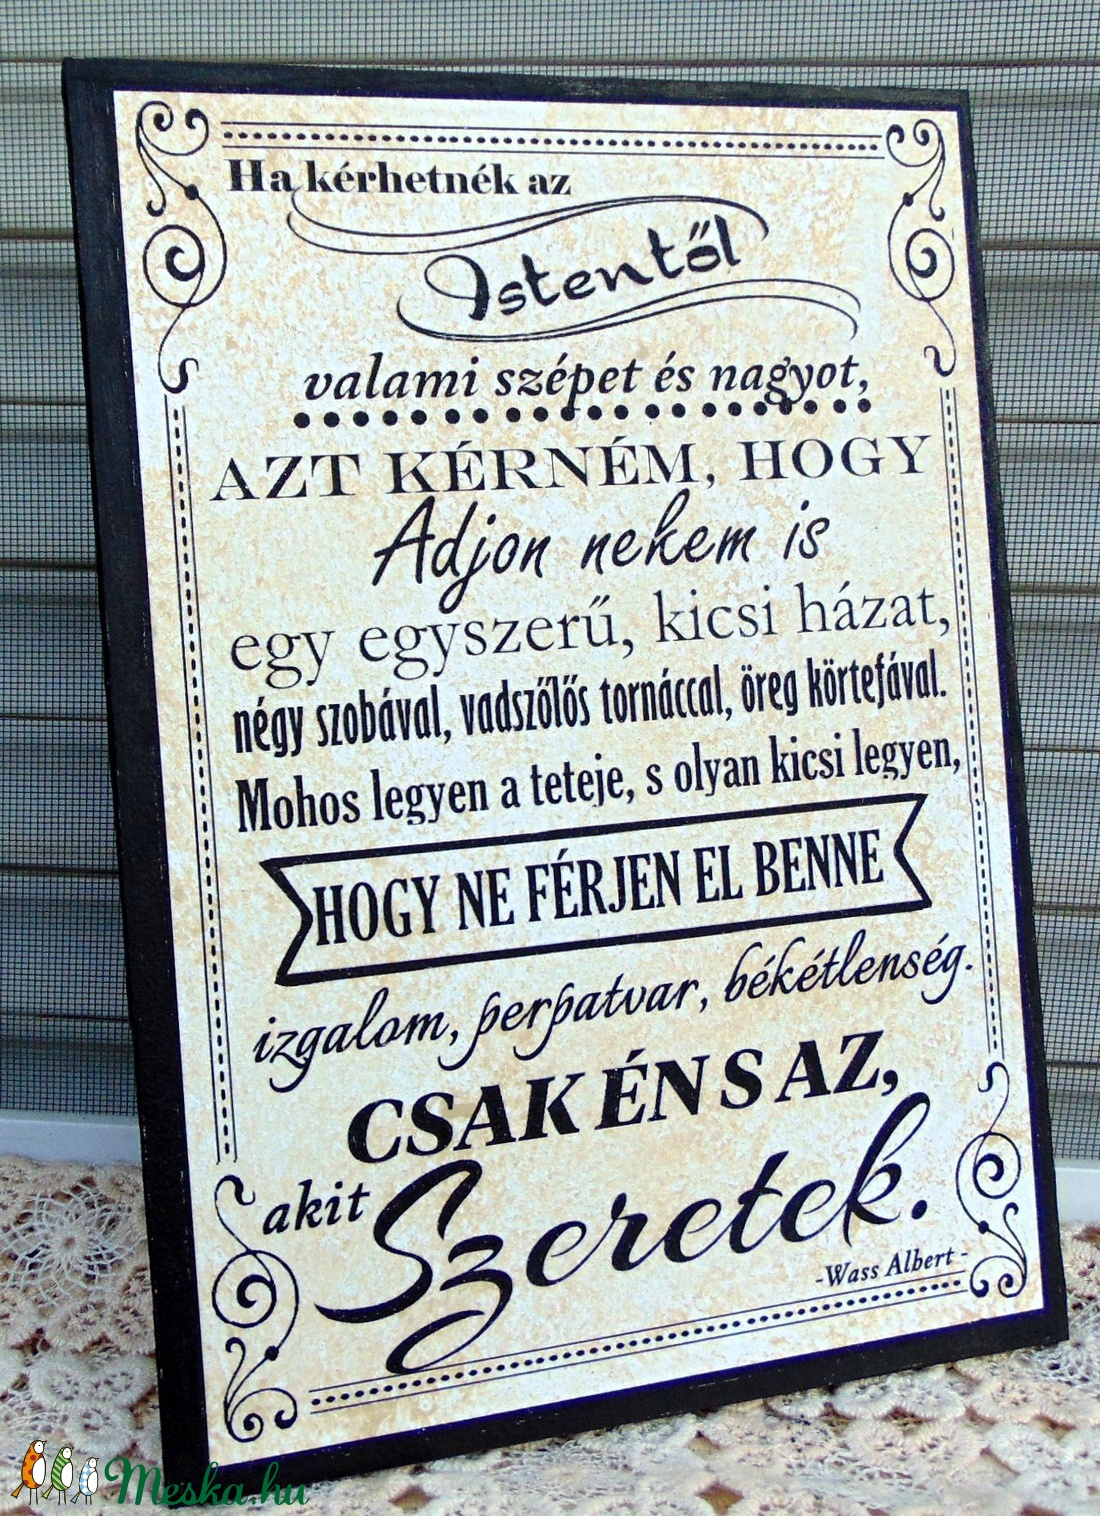 Ha kérhetnék az
Istentől
valami szépet és nagyot,
AZT KÉRNÉM, HOGY
Adjon nekem is
egy egyszerű, kicsi házat,
négy szobával, vadszőlős tornáccal, öreg körtefával.
Mohos legyen a teteje, s olyan kicsi legyen,
HOGY NE FÉRJEN EL BENNE
izgalom, perpatvar, békétlenség.
CSAK ÉN S AZ,
akit Szeretek.
-Wass Albert -
Meska.hu